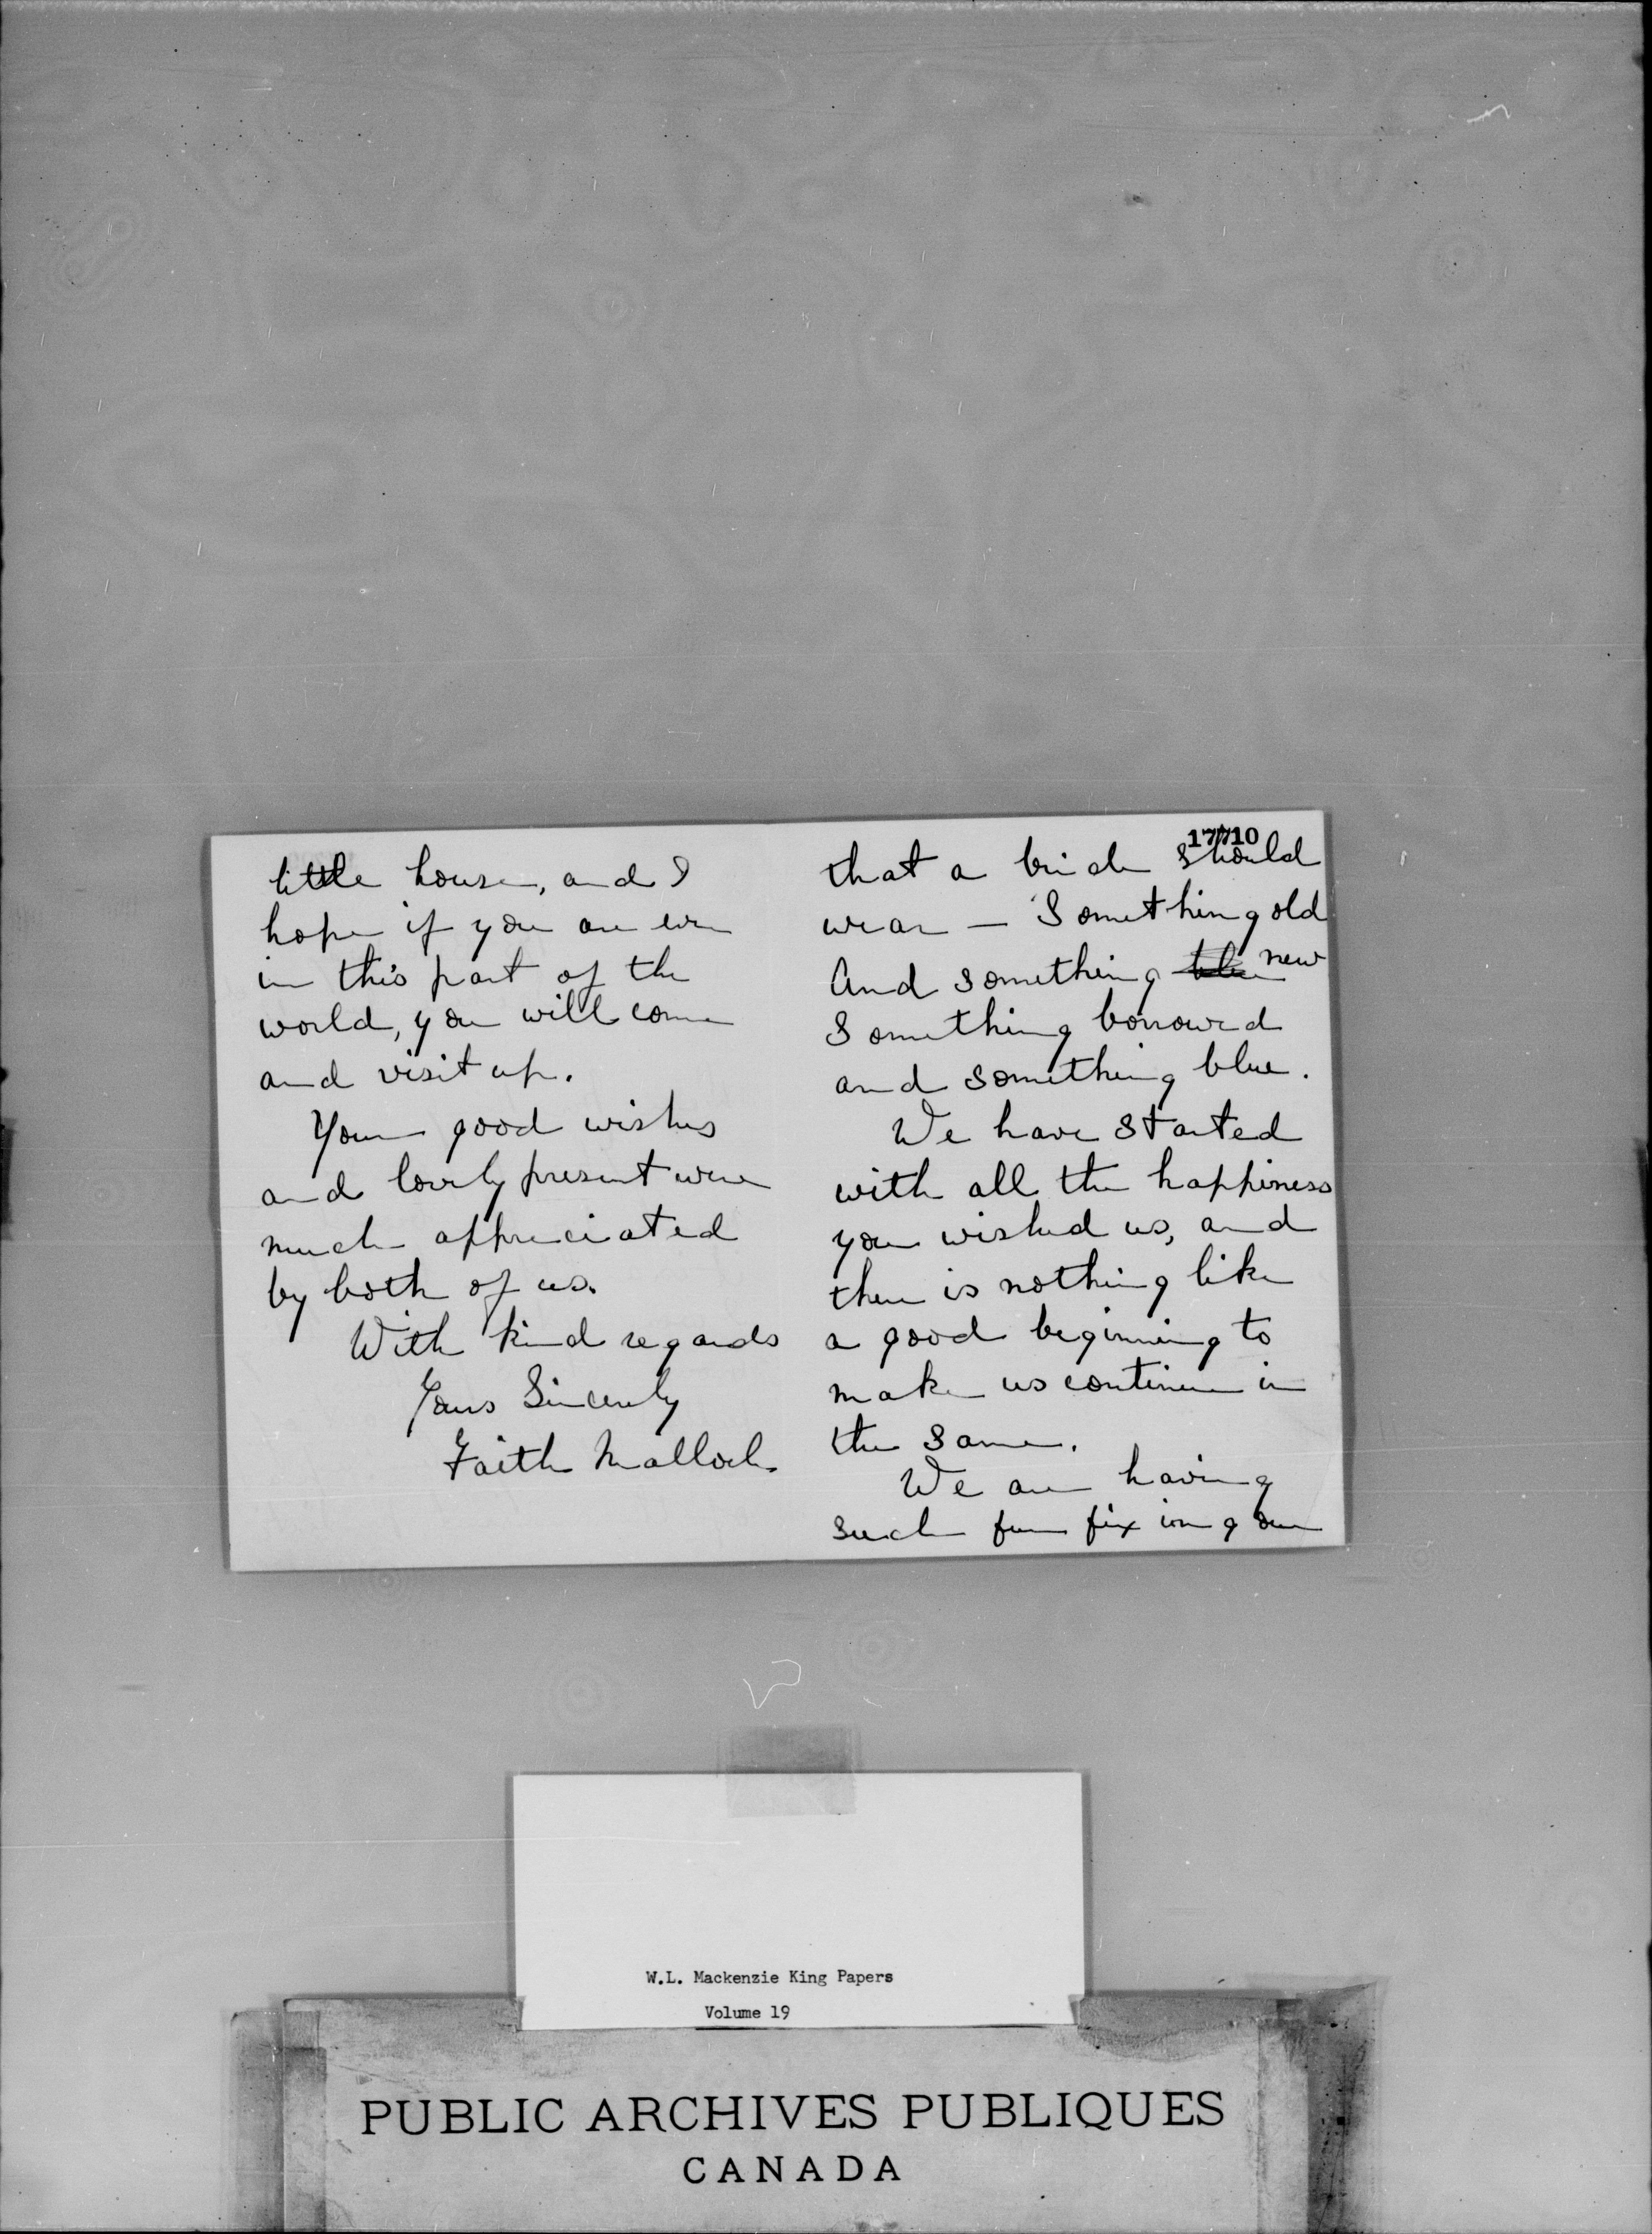 17710
that a bride should
wear — Something old
And something ~~blue~~ new
Something borrowed
and something blue.
We have started
with all the happiness
you wished us, and
there is nothing like
a good beginning to
make us continue in
the same.
We are having
such fun fixing our
little house, and I
hope if you are ever
in this part of the
world, you will come
and visit us.
Your good wishes
and lovely present were
much appreciated
by both of us.
With kind regards
Yours Sincerely
Faith Malloch.
W.L. Mackenzie King Papers
Volume 19
PUBLIC ARCHIVES PUBLIQUES
CANADA